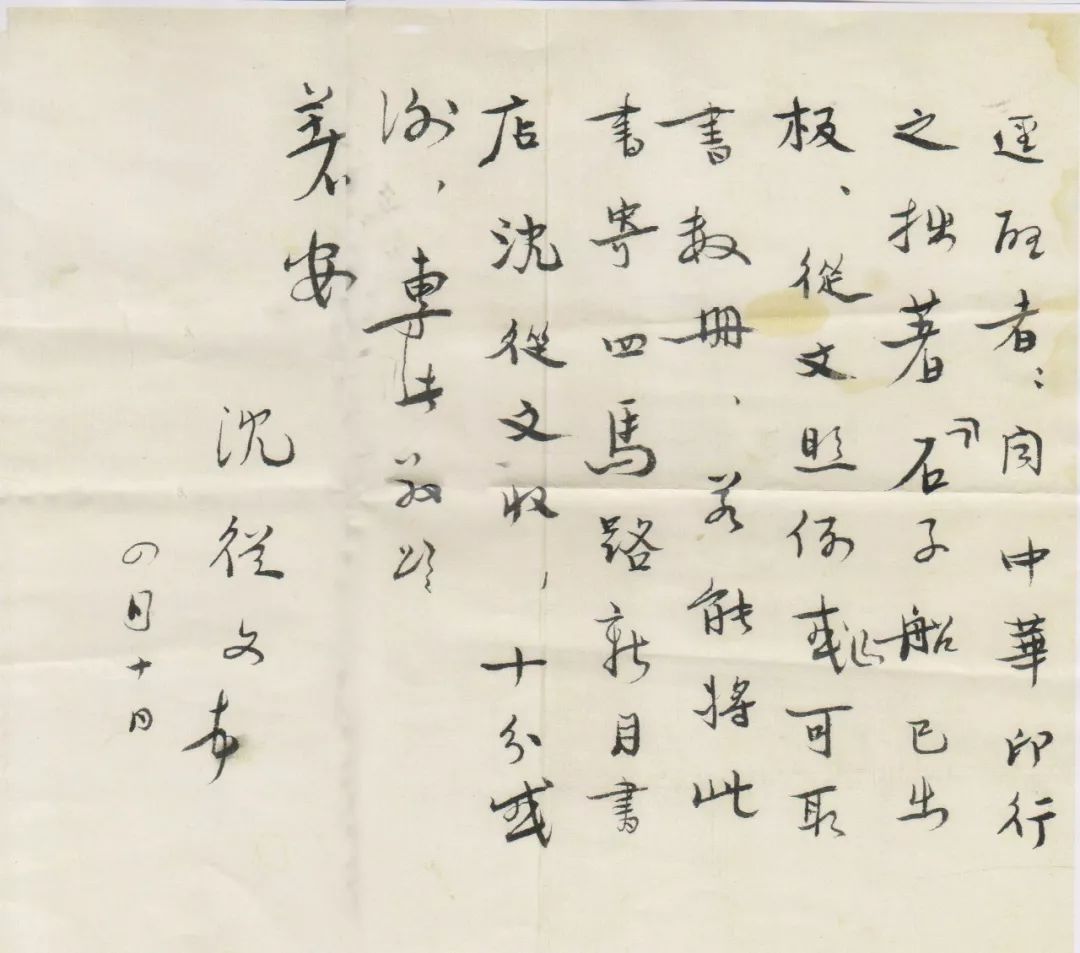 逕啟者:中華印行
之拙著『石子船』已出
板、從文照例或可取
書數冊、若能將此
書寄四馬路新月書
店沈從文收,十分感
謝,專此敬頌
著安
沈從文
四月十日